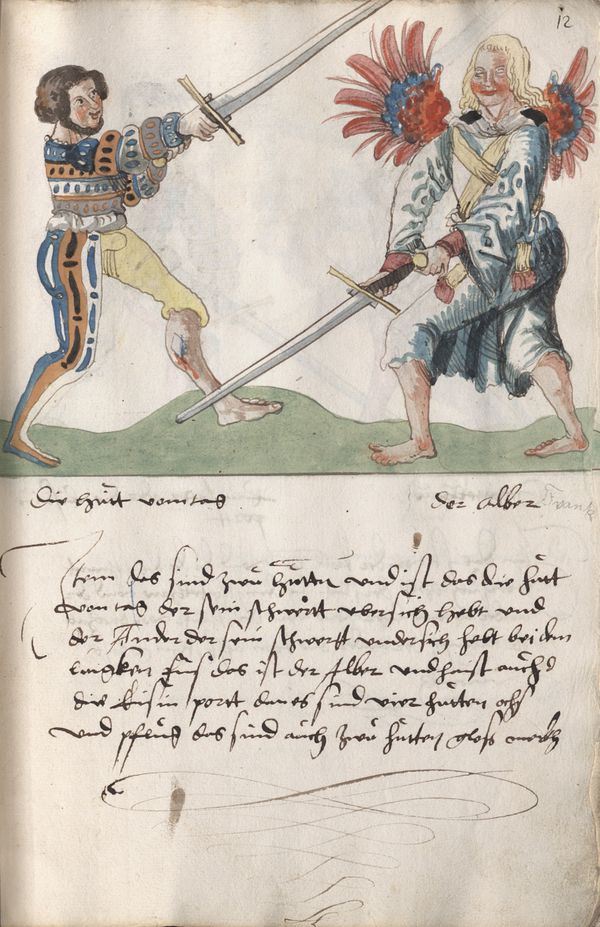 12
die hůtt vom tag
der Alber
Frank
Item das sind zwů hůtten und ist das die hůtt
vom tag der sein schwertt ubersich hebt und
der Ander der sein schwertt undersich helt bei dem
lingken fůs das ist der Alber und haist auch
die Eisin portt dan es sind vier hůtten ochs
und pflůg das sind auch zwů hůtten glos